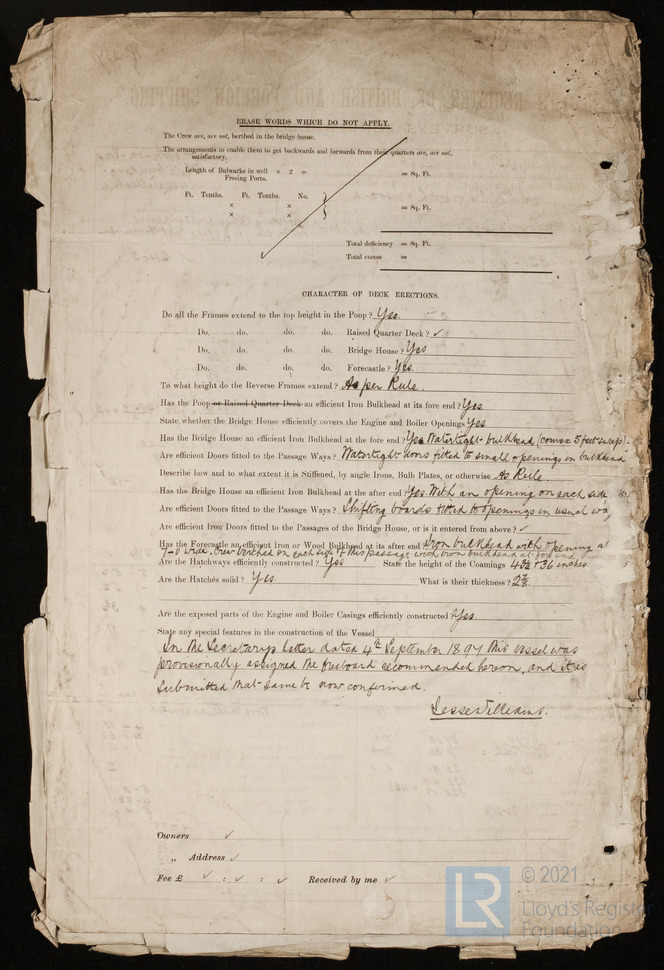 ERASE WORDS WHICH DO NOT APPLY.
The Crew are, are not, berthed in the bridge house.
The arrangements to enable them to get backwards and forwards from their quarters are, are not,
satisfactory.
Length of Bulwarks in well × 2 ÷ = Sq. Ft.
Freeing Ports.
Ft. Tenths. Ft. Tenths. No.
× ×
= Sq. Ft.
× ×
Total deficiency = Sq. Ft.
Total excess =
CHARACTER OF DECK ERECTIONS.
Do all the Frames extend to the top height in the Poop? Yes.
Do. do. do. do. Raised Quarter Deck? ✓
Do. do. do. do. Bridge House? Yes
Do. do. do. do. Forecastle? Yes.
To what height do the Reverse Frames extend? As per Rule.
Has the Poop or Raised Quarter Deck an efficient Iron Bulkhead at its fore end? Yes
State whether the Bridge House efficiently covers the Engine and Boiler Openings Yes
Has the Bridge House an efficient Iron Bulkhead at the fore end? Yes Watertight bulkhead (convex 5 feet
Are efficient Doors fitted to the Passage Ways? Watertight doors fitted to small openings in bulkhead
Describe how and to what extent it is Stiffened, by angle Irons, Bulb Plates, or otherwise As Rule
Has the Bridge House an efficient Iron Bulkhead at the after end? Yes. With an opening on each side
Are efficient Doors fitted to the Passage Ways? Shifting boards fitted to openings in usual
Are efficient Iron Doors fitted to the Passages of the Bridge House, or is it entered from above? ✓
Has the Forecastle an efficient Iron or Wood Bulkhead at its after end Iron bulkhead with opening
wide. Crew berthed on each side of this passage with iron bulkhead at
Are the Hatchways efficiently constructed? Yes State the height of the Coamings + 36 inches
Are the Hatches solid? Yes. What is their thickness?
Are the exposed parts of the Engine and Boiler Casings efficiently constructed? Yes
State any special features in the construction of the Vessel
In the Secretary's letter dated 4th September 1897 this vessel was
provisionally assigned the freeboard recommended hereon, and it is
submitted that same be now confirmed.
Jesse Williams.
Owners ✓
„ Address ✓
Fee £ ✓ : ✓ : ✓ Received by me ✓
LR
© 2021
Lloyd's Register
Foundation